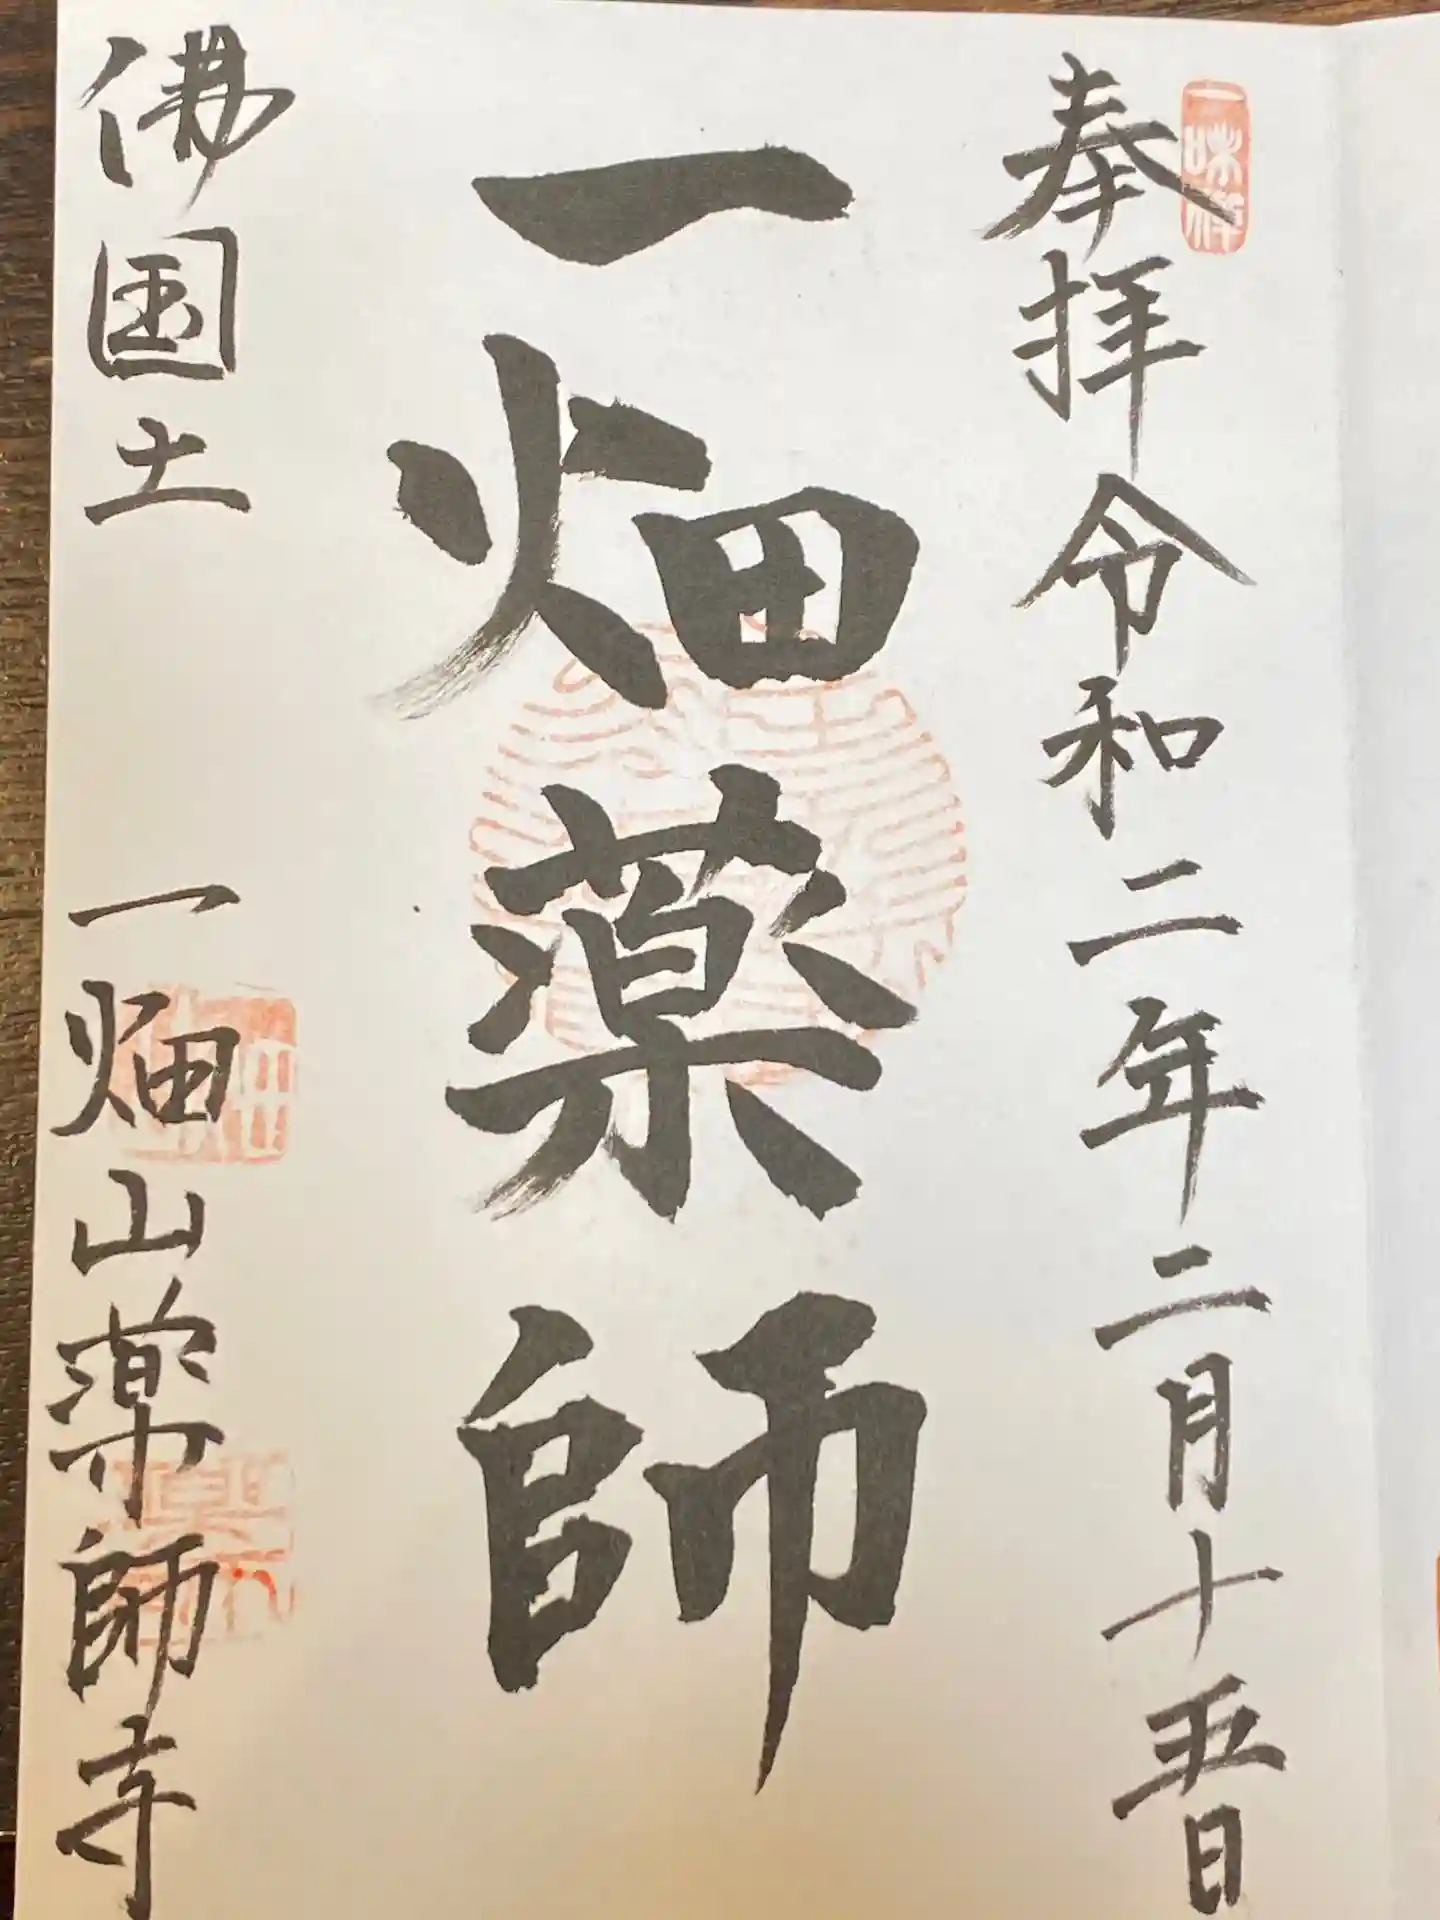 奉拝 令和二年二月十五日
一味禅
一畑薬師
佛国土 一畑山薬師寺